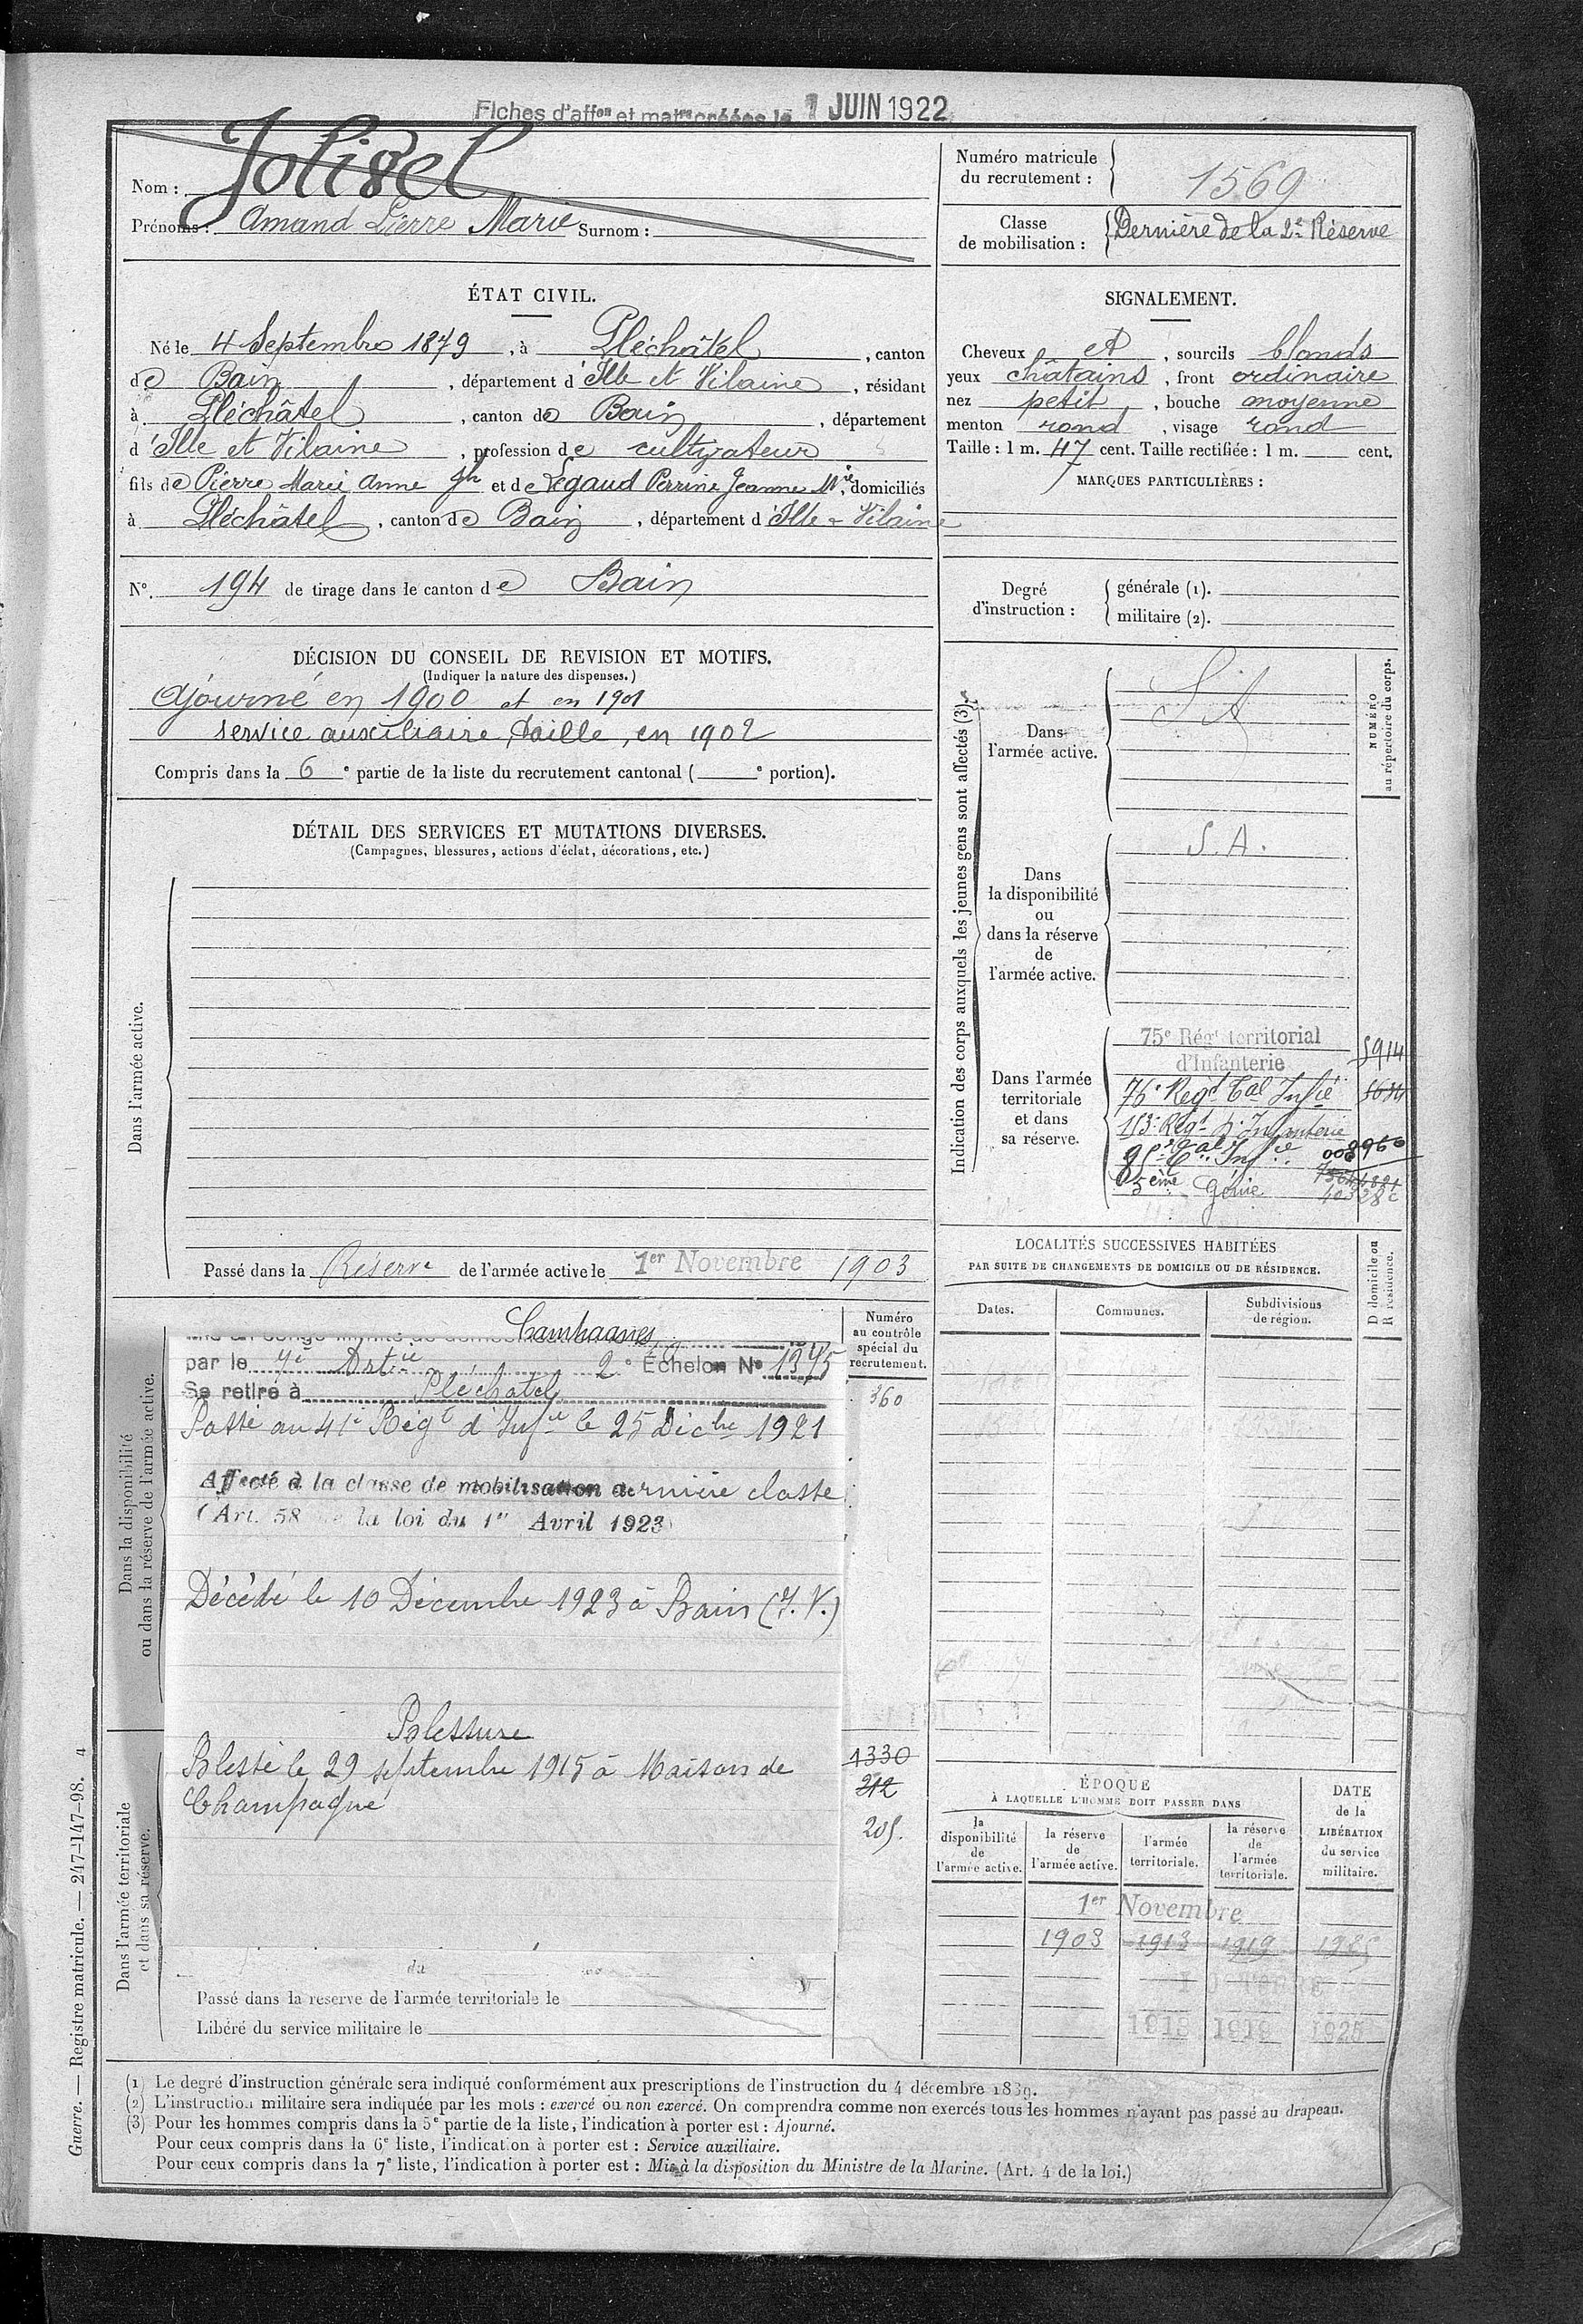 Fiches d'affon et matres créées le 1 JUIN 1922
Nom : Joligel
Prénoms : Amand Pierre Marie Surnom :
Numéro matricule
du recrutement : 1569
Classe
de mobilisation : Dernière de la 2e Réserve
ÉTAT CIVIL.
Né le 4 Septembre 1879, à Pléchâtel, canton
de Bain, département d'Ille et Vilaine, résidant
à Pléchâtel, canton de Bain, département
d'Ille et Vilaine, profession de cultivateur
fils de Pierre Marie Anne Jh et de Legaud Perrine Jeanne Mie, domiciliés
à Pléchâtel, canton de Bain, département d'Ille & Vilaine
N°. 194 de tirage dans le canton de Bain
SIGNALEMENT.
Cheveux et, sourcils blonds
yeux châtains, front ordinaire
nez petit, bouche moyenne
menton rond, visage rond
Taille : 1 m. 47 cent. Taille rectifiée : 1 m. cent.
MARQUES PARTICULIÈRES :
Degré
d'instruction :
générale (1).
militaire (2).
DÉCISION DU CONSEIL DE REVISION ET MOTIFS.
(Indiquer la nature des dispenses.)
Ajourné en 1900 et en 1901
service auxiliaire, taille, en 1902
Compris dans la 6e partie de la liste du recrutement cantonal ( e portion).
DÉTAIL DES SERVICES ET MUTATIONS DIVERSES.
(Campagnes, blessures, actions d'éclat, décorations, etc.)
Dans l'armée active.
Passé dans la Réserve de l'armée active le 1er Novembre 1903
Indication des corps auxquels les jeunes gens sont affectés (3)
NUMÉRO
au répertoire du corps.
Dans
l'armée active.
S A
Dans
la disponibilité
ou
dans la réserve
de
l'armée active.
S. A.
Dans l'armée
territoriale
et dans
sa réserve.
75e Régt territorial
d'Infanterie 5914
76e Régt Tal Infie
113e Régt d'Infanterie
85e Tal Infie
5ème Génie
LOCALITÉS SUCCESSIVES HABITÉES
PAR SUITE DE CHANGEMENTS DE DOMICILE OU DE RÉSIDENCE.
Dates.
Communes.
Subdivisions
de région.
D domicile ou
R résidence.
Dans la disponibilité
ou dans la réserve de l'armée active.
Numéro
au contrôle
spécial du
recrutement.
360
Campagnes
par le 7e Artie 2e Échelon No 1375
Se retire à Pléchatel
Passé au 41e Régt d'Infie le 25 Décbre 1921
Affecté à la classe de mobilisation dernière classe
(Art. 58 de la loi du 1er Avril 1923)
Décédé le 10 Décembre 1923 à Bain (I. V.)
Blessure
Blessé le 29 septembre 1915 à Maison de
Champagne
Dans l'armée territoriale
et dans sa réserve.
1330
212
205.
Passé dans la réserve de l'armée territoriale le
Libéré du service militaire le
ÉPOQUE
À LAQUELLE L'HOMME DOIT PASSER DANS
DATE
de la
LIBÉRATION
du service
militaire.
la
disponibilité
de
l'armée active.
la réserve
de
l'armée active.
l'armée
territoriale.
la réserve
de
l'armée
territoriale.
1er Novembre
1903 1913 1919 1925
1913 1919 1925
(1) Le degré d'instruction générale sera indiqué conformément aux prescriptions de l'instruction du 4 décembre 1889.
(2) L'instruction militaire sera indiquée par les mots : exercé ou non exercé. On comprendra comme non exercés tous les hommes n'ayant pas passé au drapeau.
(3) Pour les hommes compris dans la 5e partie de la liste, l'indication à porter est : Ajourné.
Pour ceux compris dans la 6e liste, l'indication à porter est : Service auxiliaire.
Pour ceux compris dans la 7e liste, l'indication à porter est : Mis à la disposition du Ministre de la Marine. (Art. 4 de la loi.)
Guerre. — Registre matricule. — 247-147-98. 4